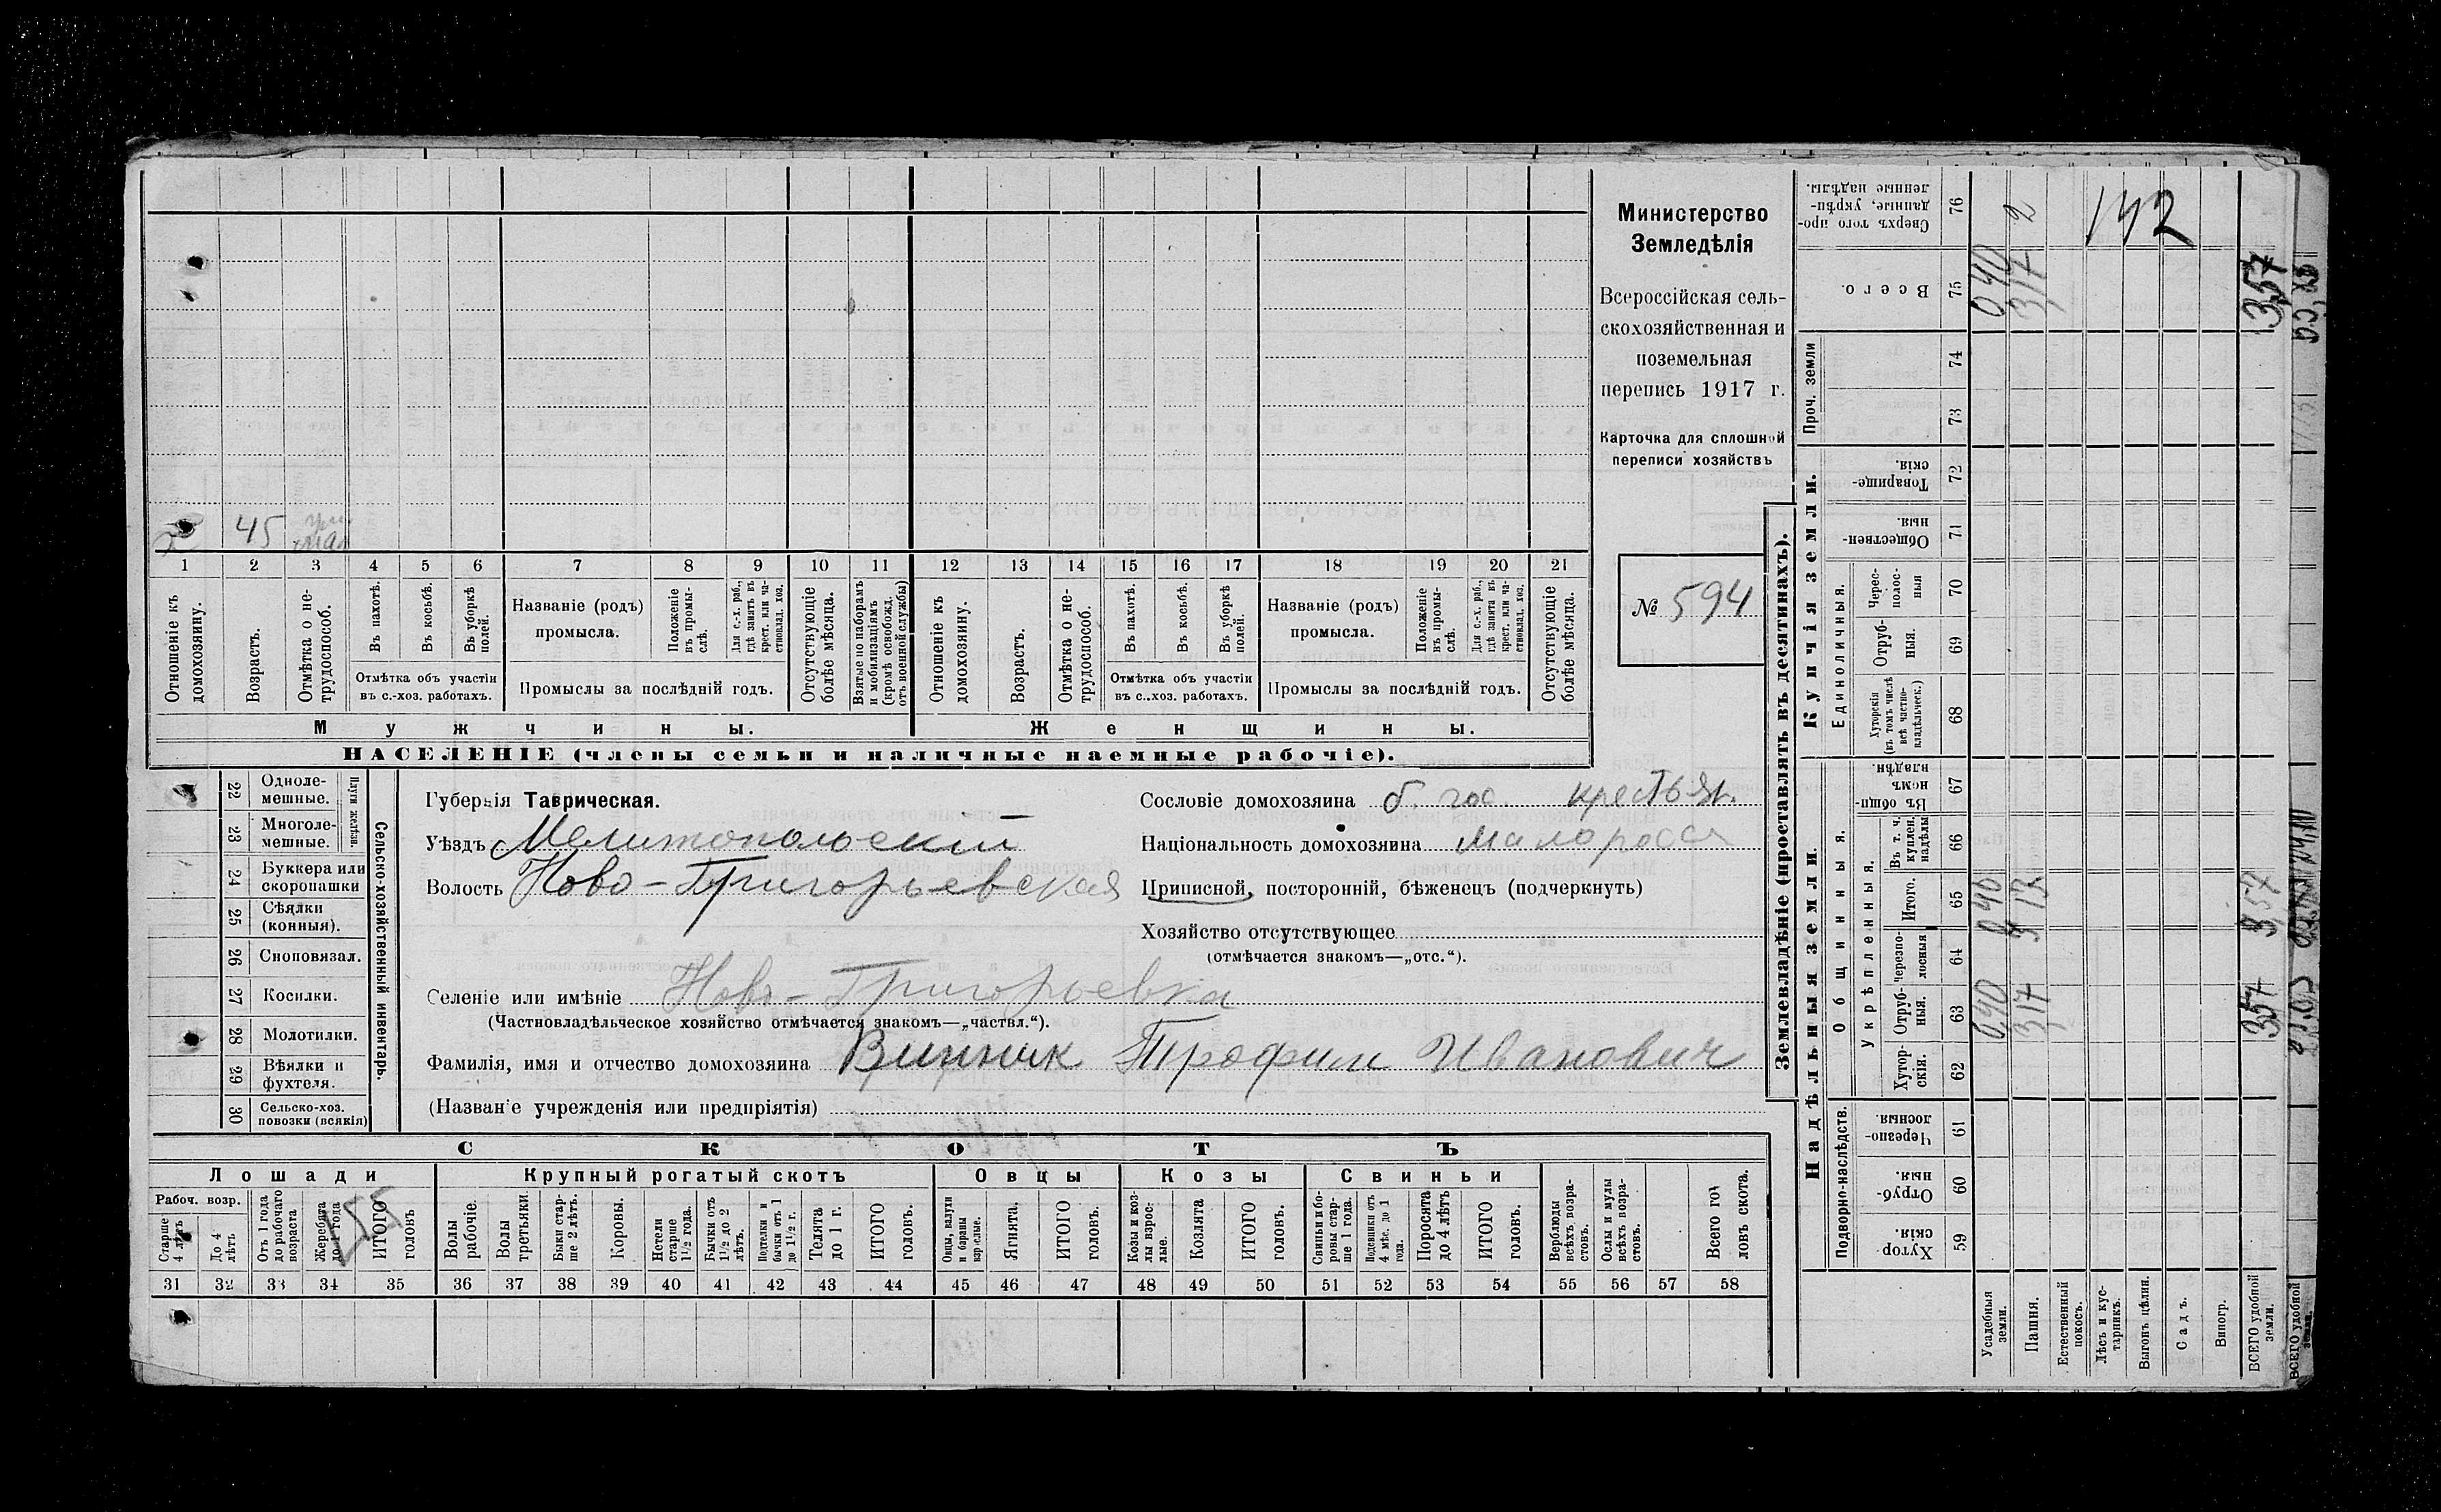 х 45
1 2 3 4 5 6 7 8 9 10 11 12 13 14 15 16 17 18 19 20 21
Отношеніе къ домохозяину.
Возрастъ.
Отмѣтка о нетрудоспособ.
Въ пахотѣ.
Въ косьбѣ.
Въ уборкѣ полей.
Отмѣтка объ участіи
въ с.-хоз. работахъ.
Названіе (родъ)
промысла.
Положеніе въ промыслѣ.
Для с.-х. раб., гдѣ занятъ въ крест. или частновлад. хоз.
Промыслы за послѣдній годъ.
Отсутствующіе болѣе мѣсяца.
Взятые по наборамъ и мобилизаціямъ (кромѣ освобожд. отъ военной службы)
Отношеніе къ домохозяину.
Возрастъ.
Отмѣтка о нетрудоспособ.
Въ пахотѣ.
Въ косьбѣ.
Въ уборкѣ полей.
Отмѣтка объ участіи
въ с.-хоз. работахъ.
Названіе (родъ)
промысла.
Положеніе въ промыслѣ.
Для с.-х. раб., гдѣ занята въ крест. или частновлад. хоз.
Промыслы за послѣдній годъ.
Отсутствующіе болѣе мѣсяца.
Мужчины.
Женщины.
НАСЕЛЕНІЕ (члены семьи и наличные наемные рабочіе).
Министерство
Земледѣлія
Всероссійская сель-
скохозяйственная и
поземельная
перепись 1917 г.
Карточка для сплошной
переписи хозяйствъ
№ 594
22 Одноле-
мешные.
23 Многоле-
мешные.
Плуги желѣзн.
24 Буккера или
скоропашки
25 Сѣялки
(конныя).
26 Сноповязал.
27 Косилки.
28 Молотилки.
29 Вѣялки и
фухтеля.
30 Сельско-хоз.
повозки (всякія)
Сельско-хозяйственный инвентарь.
Губернія Таврическая.
Уѣздъ Мелитопольскій
Волость Ново-Григорьевская
Селеніе или имѣніе Ново-Григорьевка
(Частновладѣльческое хозяйство отмѣчается знакомъ—„частвл.“).
Фамилія, имя и отчество домохозяина Винник Трофим Иванович
(Названіе учрежденія или предпріятія)
Сословіе домохозяина б. гос. крестьян.
Національность домохозяина малоросс
Приписной, посторонній, бѣженецъ (подчеркнуть)
Хозяйство отсутствующее
(отмѣчается знакомъ—„отс.“).
СКОТЪ
Лошади
Крупный рогатый скотъ
Овцы
Козы
Свиньи
Рабоч. возр.
Старше 4 лѣтъ
До 4 лѣтъ
Отъ 1 года до рабочаго возраста
Жеребята до 1 года
ИТОГО головъ
Волы рабочіе.
Волы третьяки.
Быки старше 2 лѣтъ.
Коровы.
Нетели старше 1½ года.
Бычки отъ 1½ до 2 лѣтъ.
Подтелки и бычки отъ 1 до 1½ г.
Телята до 1 г.
ИТОГО головъ.
Овцы, валухи и бараны взрослые.
Ягнята.
ИТОГО головъ.
Козы и козлы взрослые.
Козлята
ИТОГО головъ.
Свиньи и боровы старше 1 года.
Подсвинки отъ 4 мѣс. до 1 года.
Поросята до 4 лѣтъ
ИТОГО головъ.
Верблюды всѣхъ возрастовъ.
Ослы и мулы всѣхъ возрастовъ.
Всего головъ скота.
31 32 33 34 35 36 37 38 39 40 41 42 43 44 45 46 47 48 49 50 51 52 53 54 55 56 57 58
Землевладѣніе (проставлять въ десятинахъ).
Надѣльныя земли.
Купчія земли.
Проч. земли
Подворно-наслѣдств.
Общинныя.
Укрѣпленныя.
Единоличныя.
Хуторскія. 59
Отрубныя. 60
Черезполосныя 61
Хуторскія. 62
Отрубныя. 63
Черезполосныя 64
Итого. 65
Въ т. ч. куплен. надѣлы 66
Въ общиномъ владѣн. 67
Хуторскія (въ томъ числѣ всѣ частновладѣльческ.) 68
Отрубныя. 69
Череcполосныя 70
Общественныя. 71
Товарищескія. 72
73
74
Всего. 75
Сверхъ того проданные, укрѣпленные надѣлы. 76
Усадебныя земли. 0,40 0,40 0,40
Пашня. 3,17 3,17
Естественный покосъ.
Лѣсъ и кустарникъ.
Выгонъ цѣлин.
Садъ.
Виногр.
ВСЕГО удобной земли. 3,57 3,57 3,57
ВСЕГО удобной земли.
142